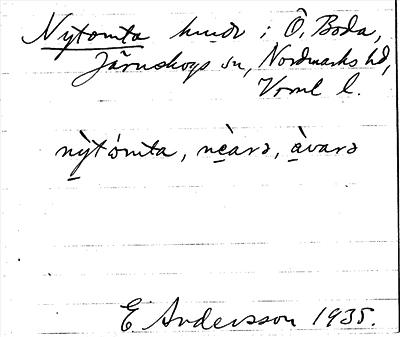 Nytomta hmdr i Ö. Boda,
Järnskogs sn, Nordmarks hd,
Vrml l.
nỳt ómta, nèarə, àvarə
E Andersson 1935.